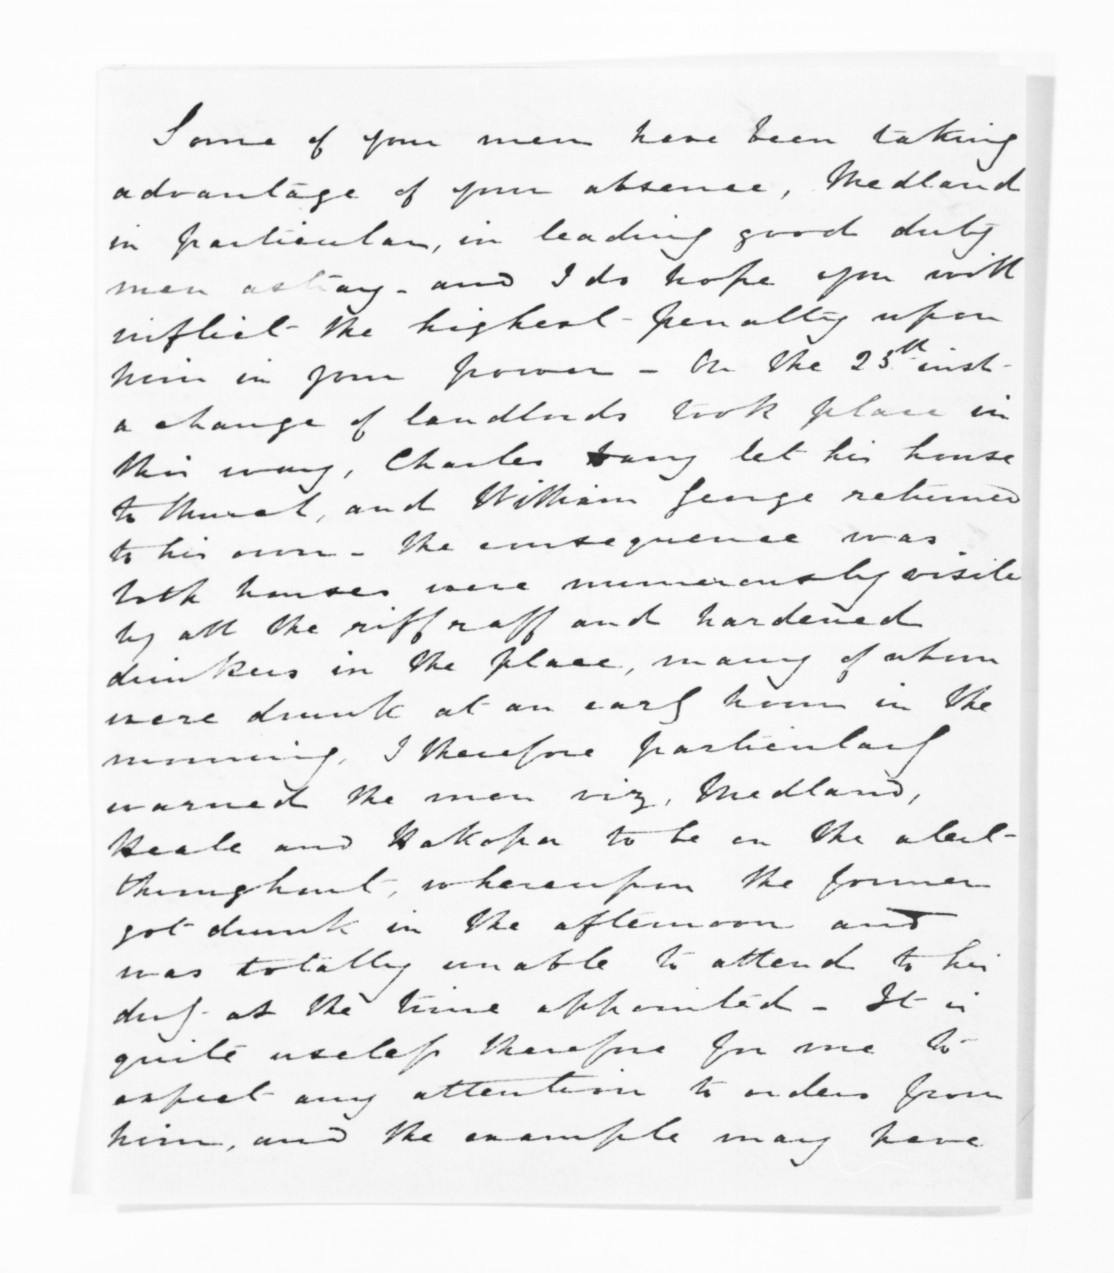 Some of your men have been taking
advantage of your absence, Medland
in particular, in leading good duty
men astray - and I do hope you will
inflict the highest penalty upon
him in your power - On the 25th inst.
a change of landlords took place in
this way, Charles let his house
to and William George returned
to his own - the consequence was
both houses were numerously visited
by all the riff raff and hardened
drinkers in the place, many of whom
were drunk at an early hour in the
morning. I therefore particularly
warned the men viz, Medland,
Heale and to be on the alert
throughout, whereupon the former
got drunk in the afternoon and
was totally unable to attend to his
duty at the time appointed - It is
quite useless therefore for me to
expect any attention to orders from
him, and the example may have